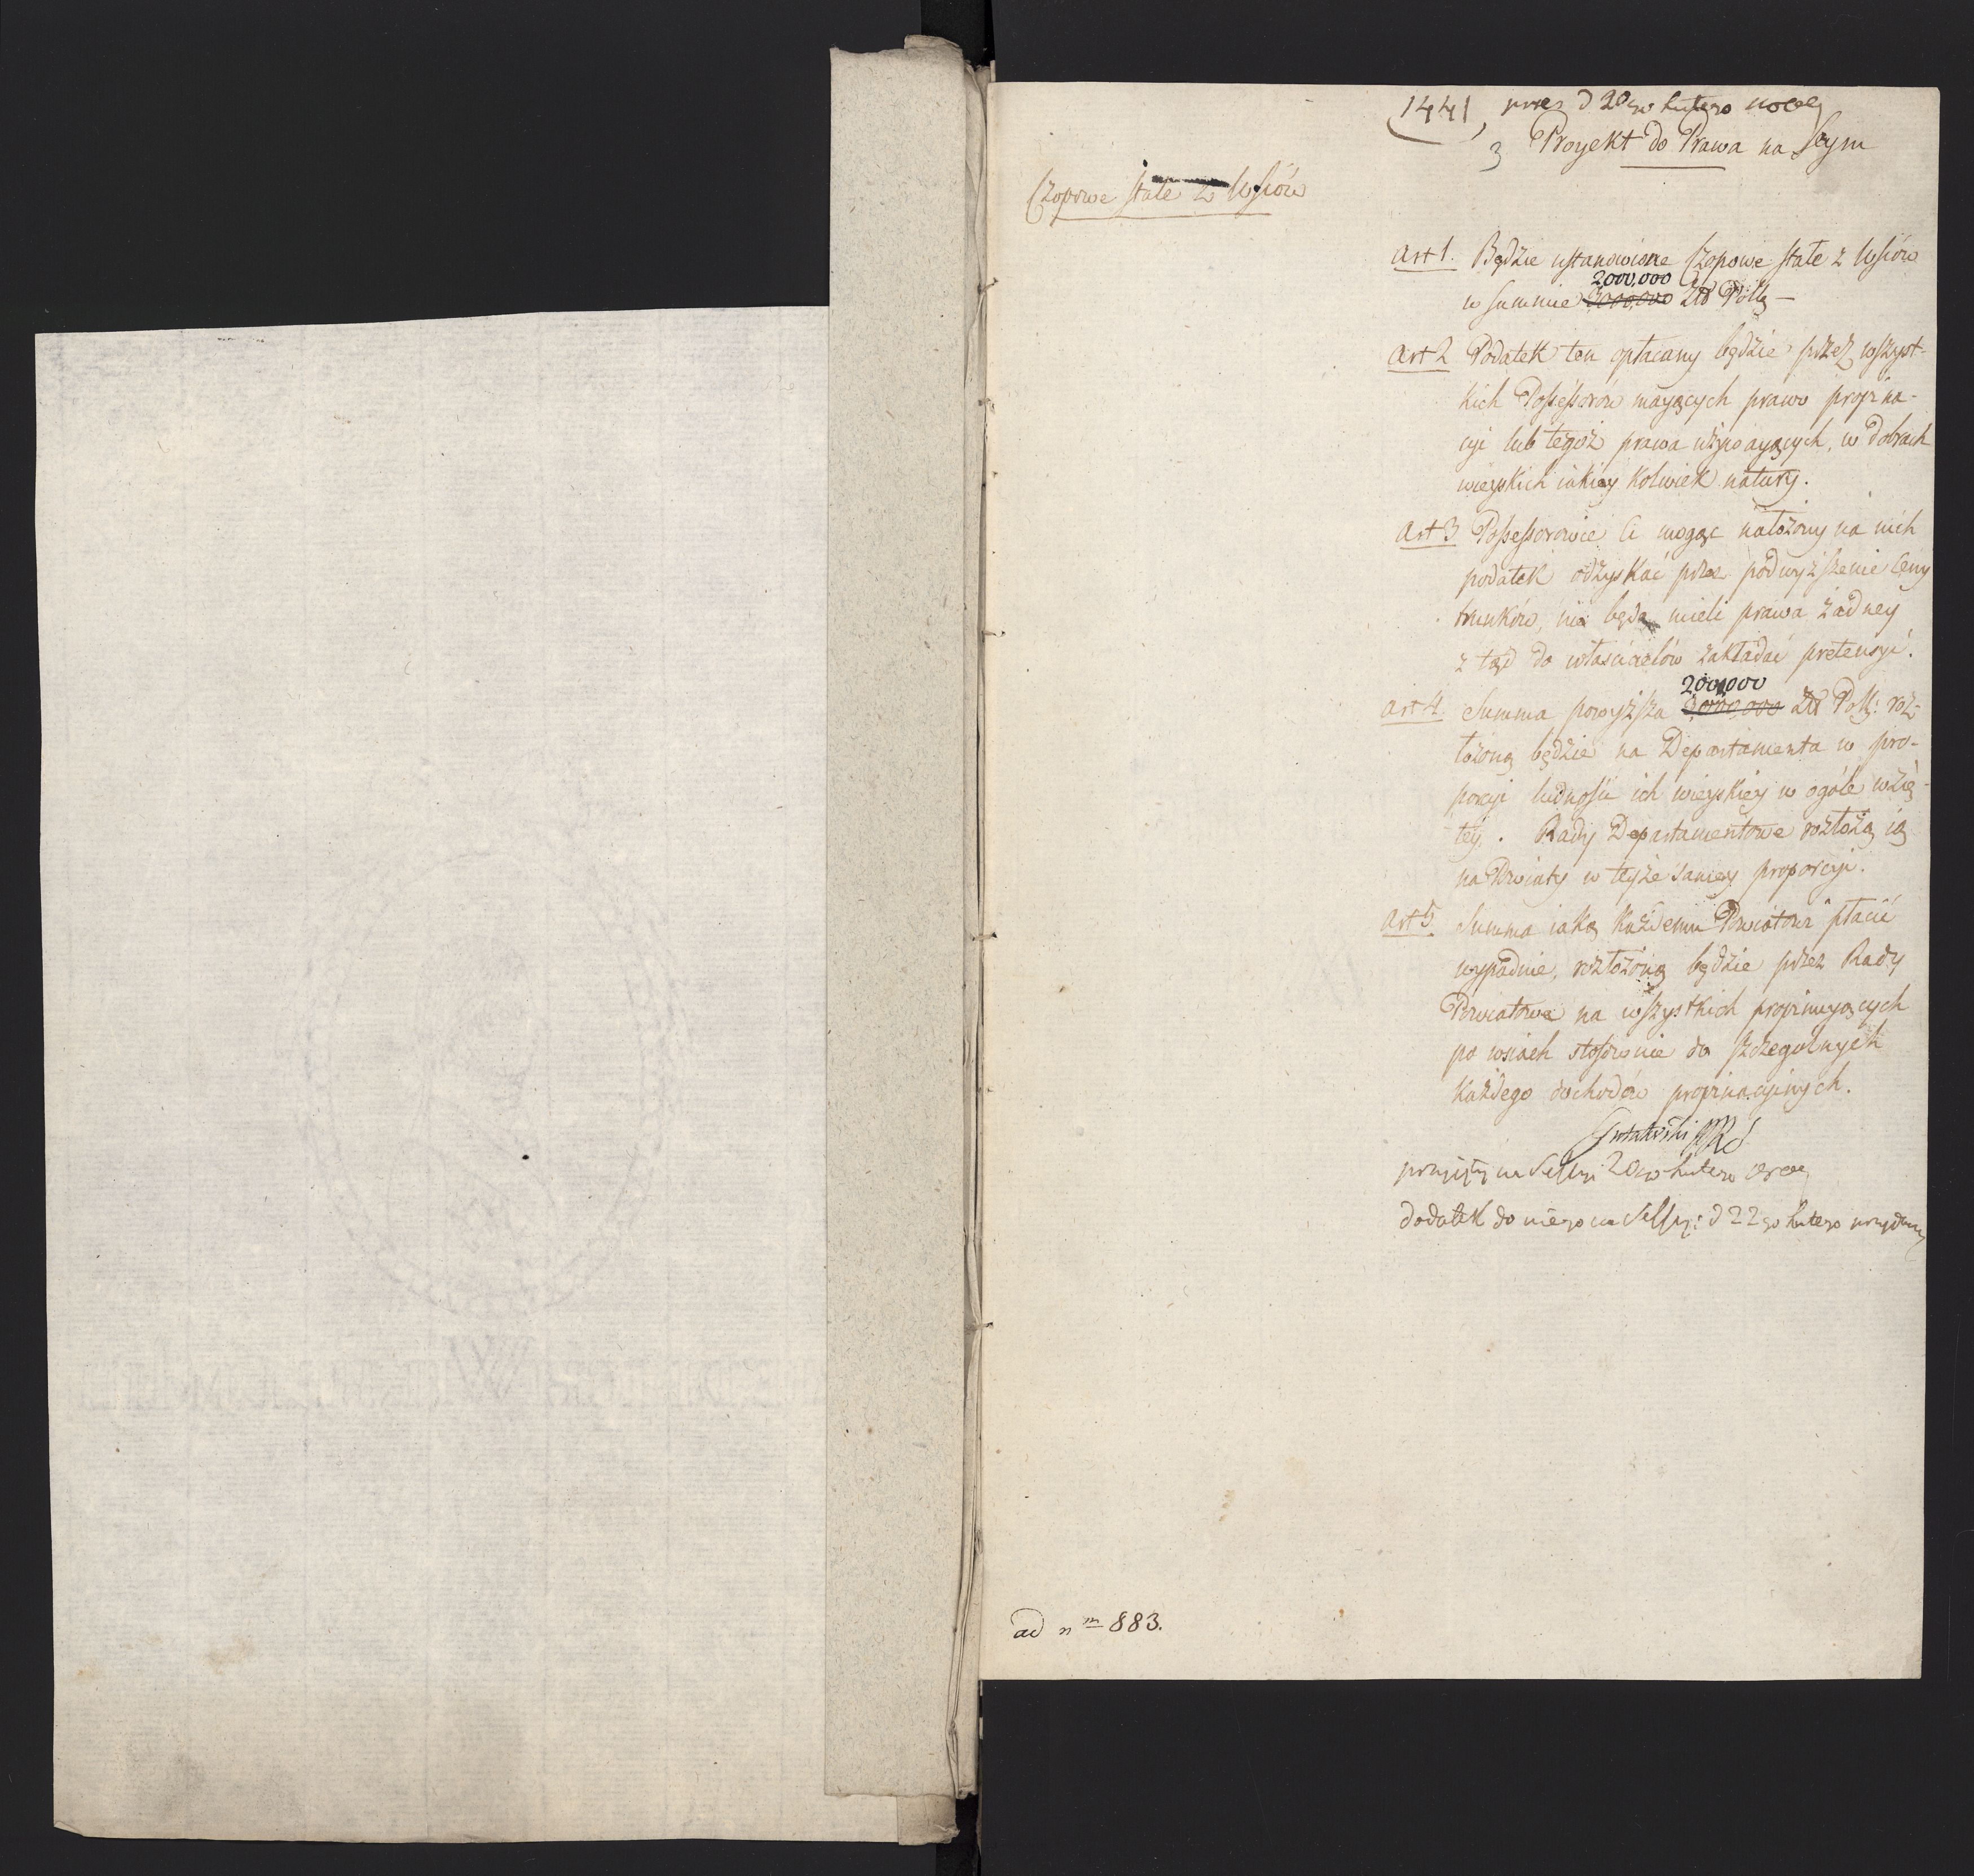 1441, prez d 20go Lutego
3 Proyekt do Prawa na Seym
Czopowe stałe z Wsiów
Art 1. Będzie ustanowione Czopowe stałe z Wsiów
2000,000
w summie 3000,000 Zło Polls –
Art 2 Podatek ten opłacany będzie przez wszyst-
kich Possessorów maiących prawo propina-
cyi lub tegoż prawa używaiących, w dobrach
wieyskich iakiey kolwiek natury.
Art 3 Possessorowie Ci mogąc nałożony na nich
podatek odzyskać przez podwyższenie Ceny
trunków, nie będą mieli prawa żadney
z tąd do właścicielów zakładać pretensyi.
2000,000
Art 4. Summa powyższa 3000,000 Zło Poll: roz-
łożoną będzie na Departamenta w pro-
porcyi ludności ich wieyskiey w ogóle wzię-
tey. Rady Departamentowe rozłożą ią
na Powiaty w teyże samey proporcyi.
Art 5 Summa iaką każdemu Powiatowi płacić
wypadnie, rozłożoną będzie przez Rady
Powiatowe na wszystkich propinuiących
po wsiach stosownie do szczegulnych
każdego dochodów propinacyinych.
przyięty na Sessyi 20go Lutego
dodatek do niego na Sessyi d 22go Lutego
ad nm 883.